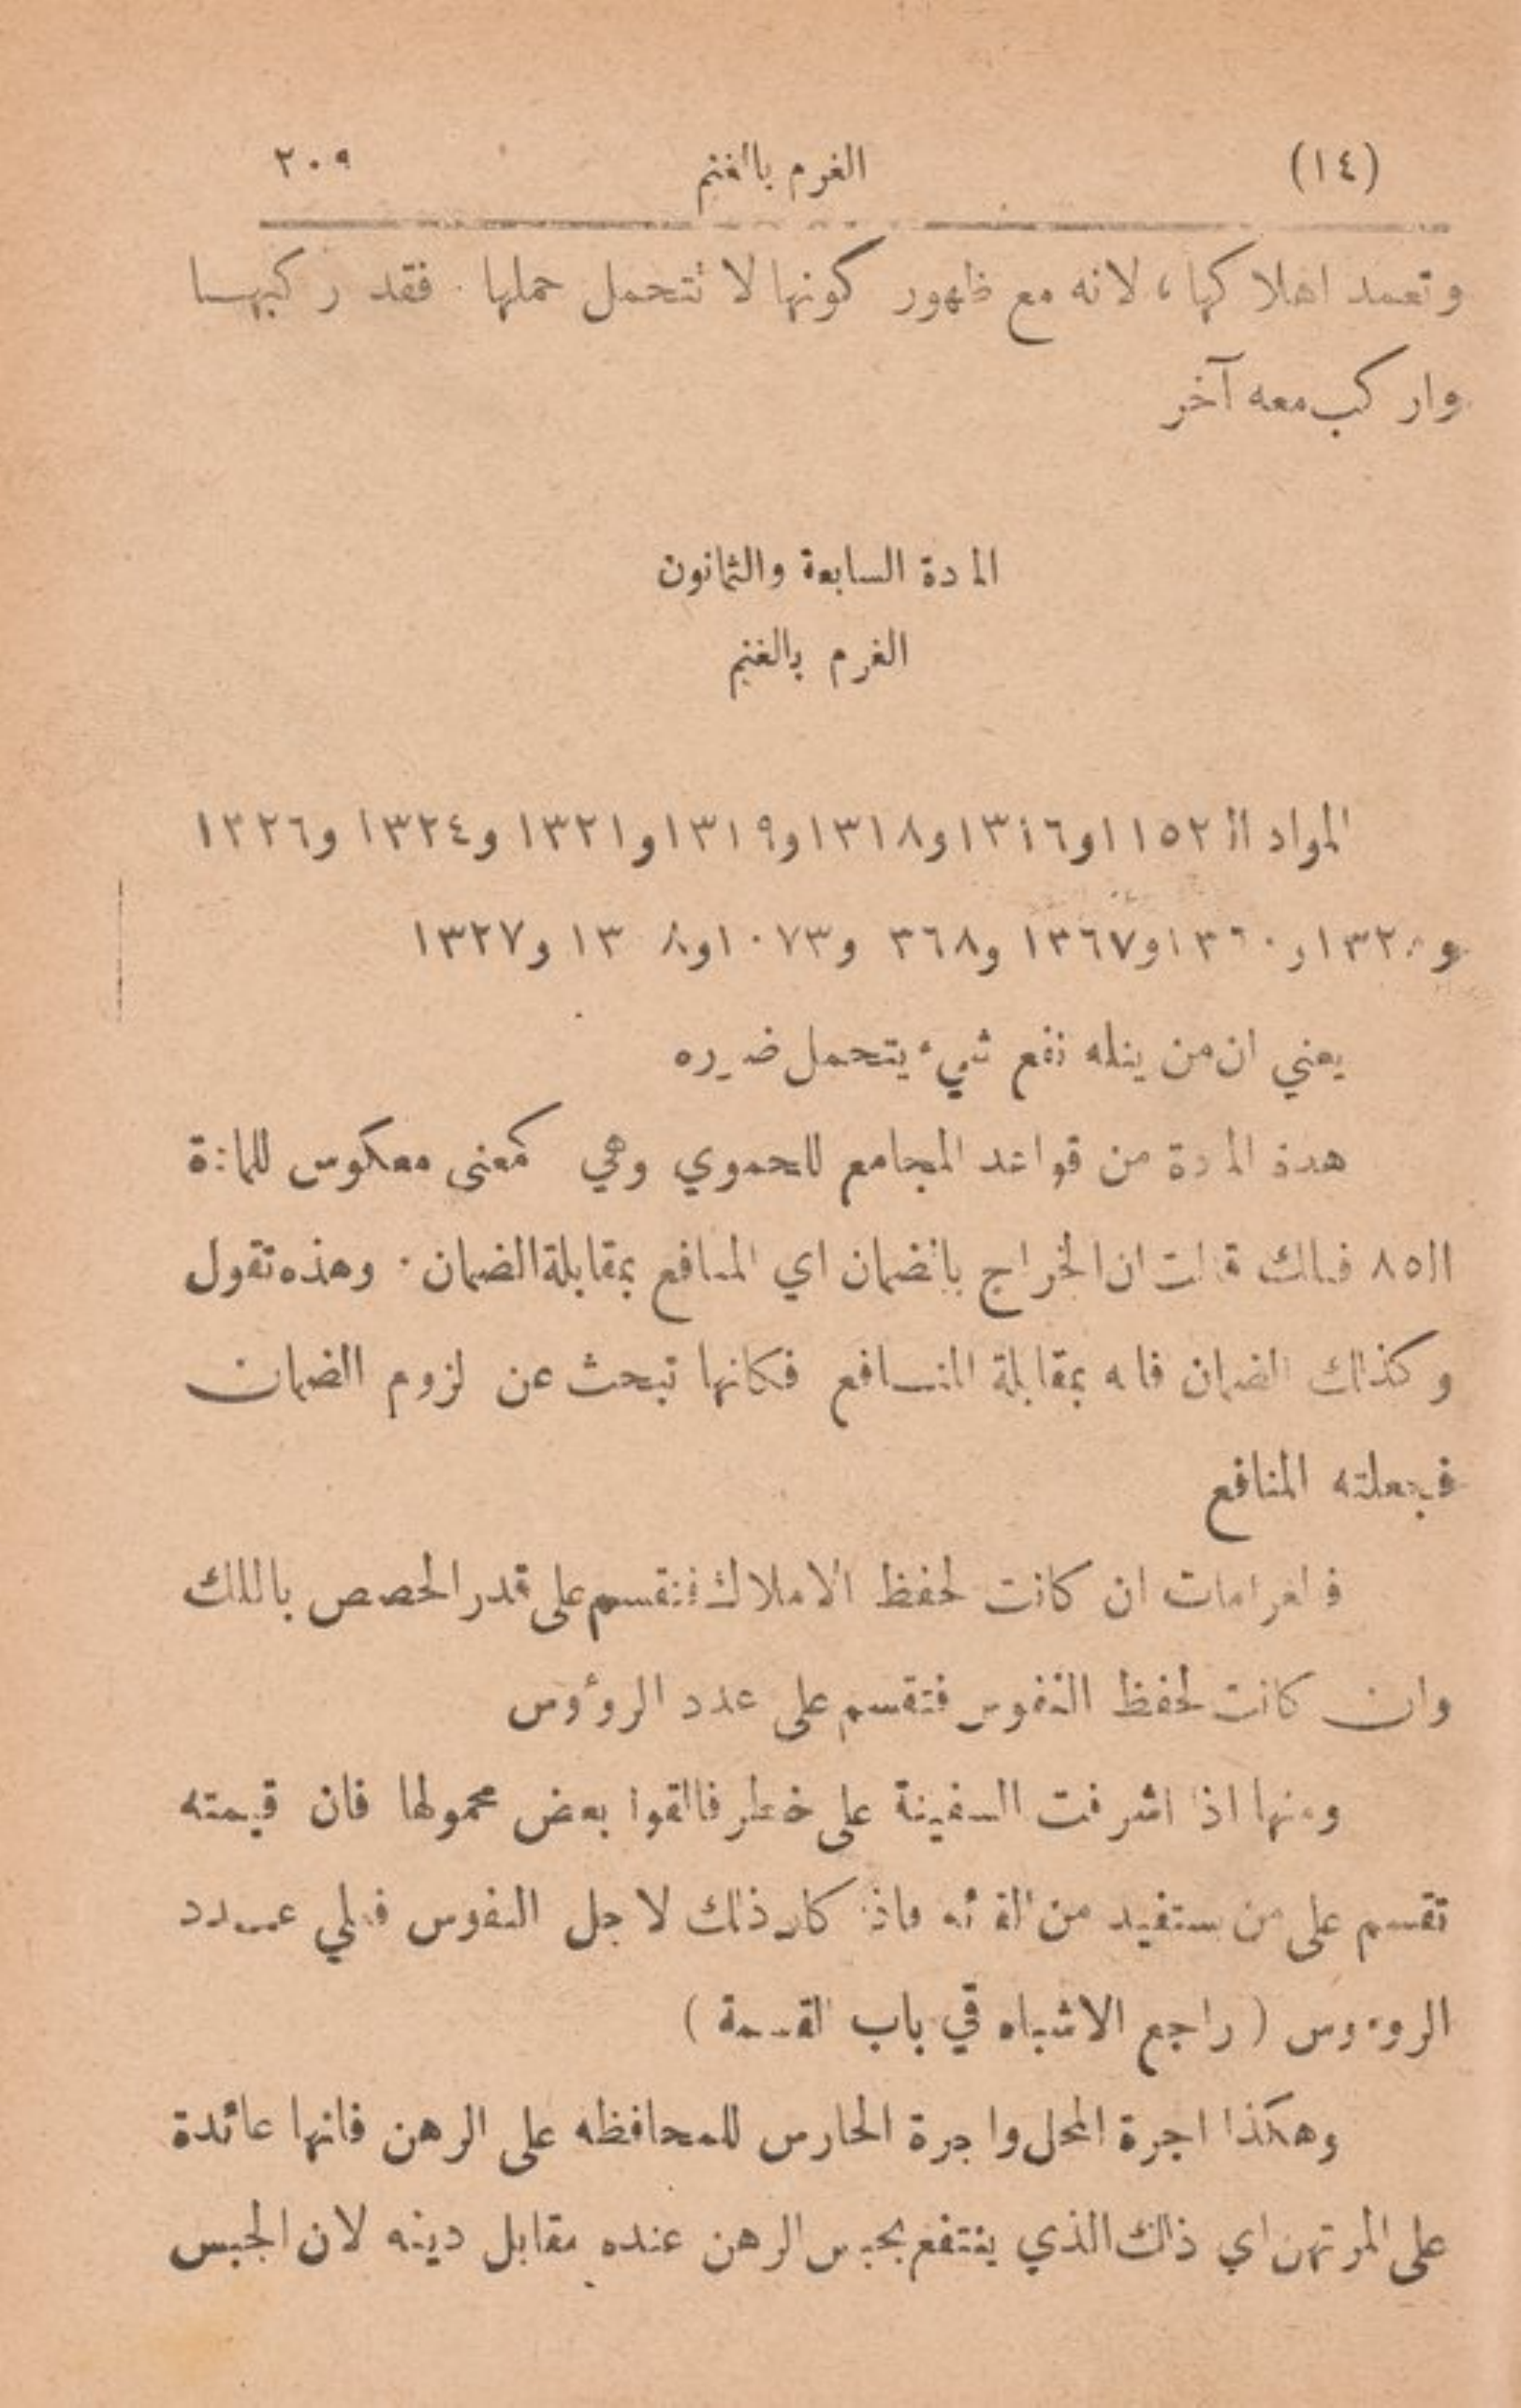 (١٤) الغرم بالغنم ٢٠٩
وتعمد اهلاكها، لانه مع ظهور كونها لا تتحمل حملها. فقد ركبهـا
واركب معه آخر
المادة السابعة والثمانون
الغرم بالغنم
المواد الـ ١١٥٢ و١٣١٦ و١٣١٨ و١٣١٩ و١٣٢١ و١٣٢٤ و١٣٢٦
و١٣٦٠ و١٣٦٧ و٣٦٨ و١٠٧٣ و١٣٢٧
يعني ان من ينله نفع شيء يتحمل ضرره
هذه المادة من قواعد المجامع للحموي وهي كمعنى معكوس للمادة
الـ ٨٥ فتلك قالت ان الخراج بالضمان اي المنافع بمقابلة الضمان. وهذه تقول
وكذلك الضمان فانه بمقابلة المنـافع فكانها تبحث عن لزوم الضمان
فجعلته المنافع
فالغرامات ان كانت لحفظ الاملاك فتقسم على قدر الحصص بالملك
وان كانت لحفظ النفوس فتقسم على عدد الروؤس
ومنها اذا اشرفت السفينة على خطر فالقوا بعض محمولها فان قيمته
تقسم على من يستفيد من القائه واذا كان ذلك لاجل النفوس فعلي عـدد
الروءوس (راجع الاشباه في باب القسمة)
وهكذا اجرة المحل واجرة الحارس للمحافظه على الرهن فانها عائدة
على المرتهن اي ذلك الذي ينتفع بحبس الرهن عنده مقابل دينه لان الحبس